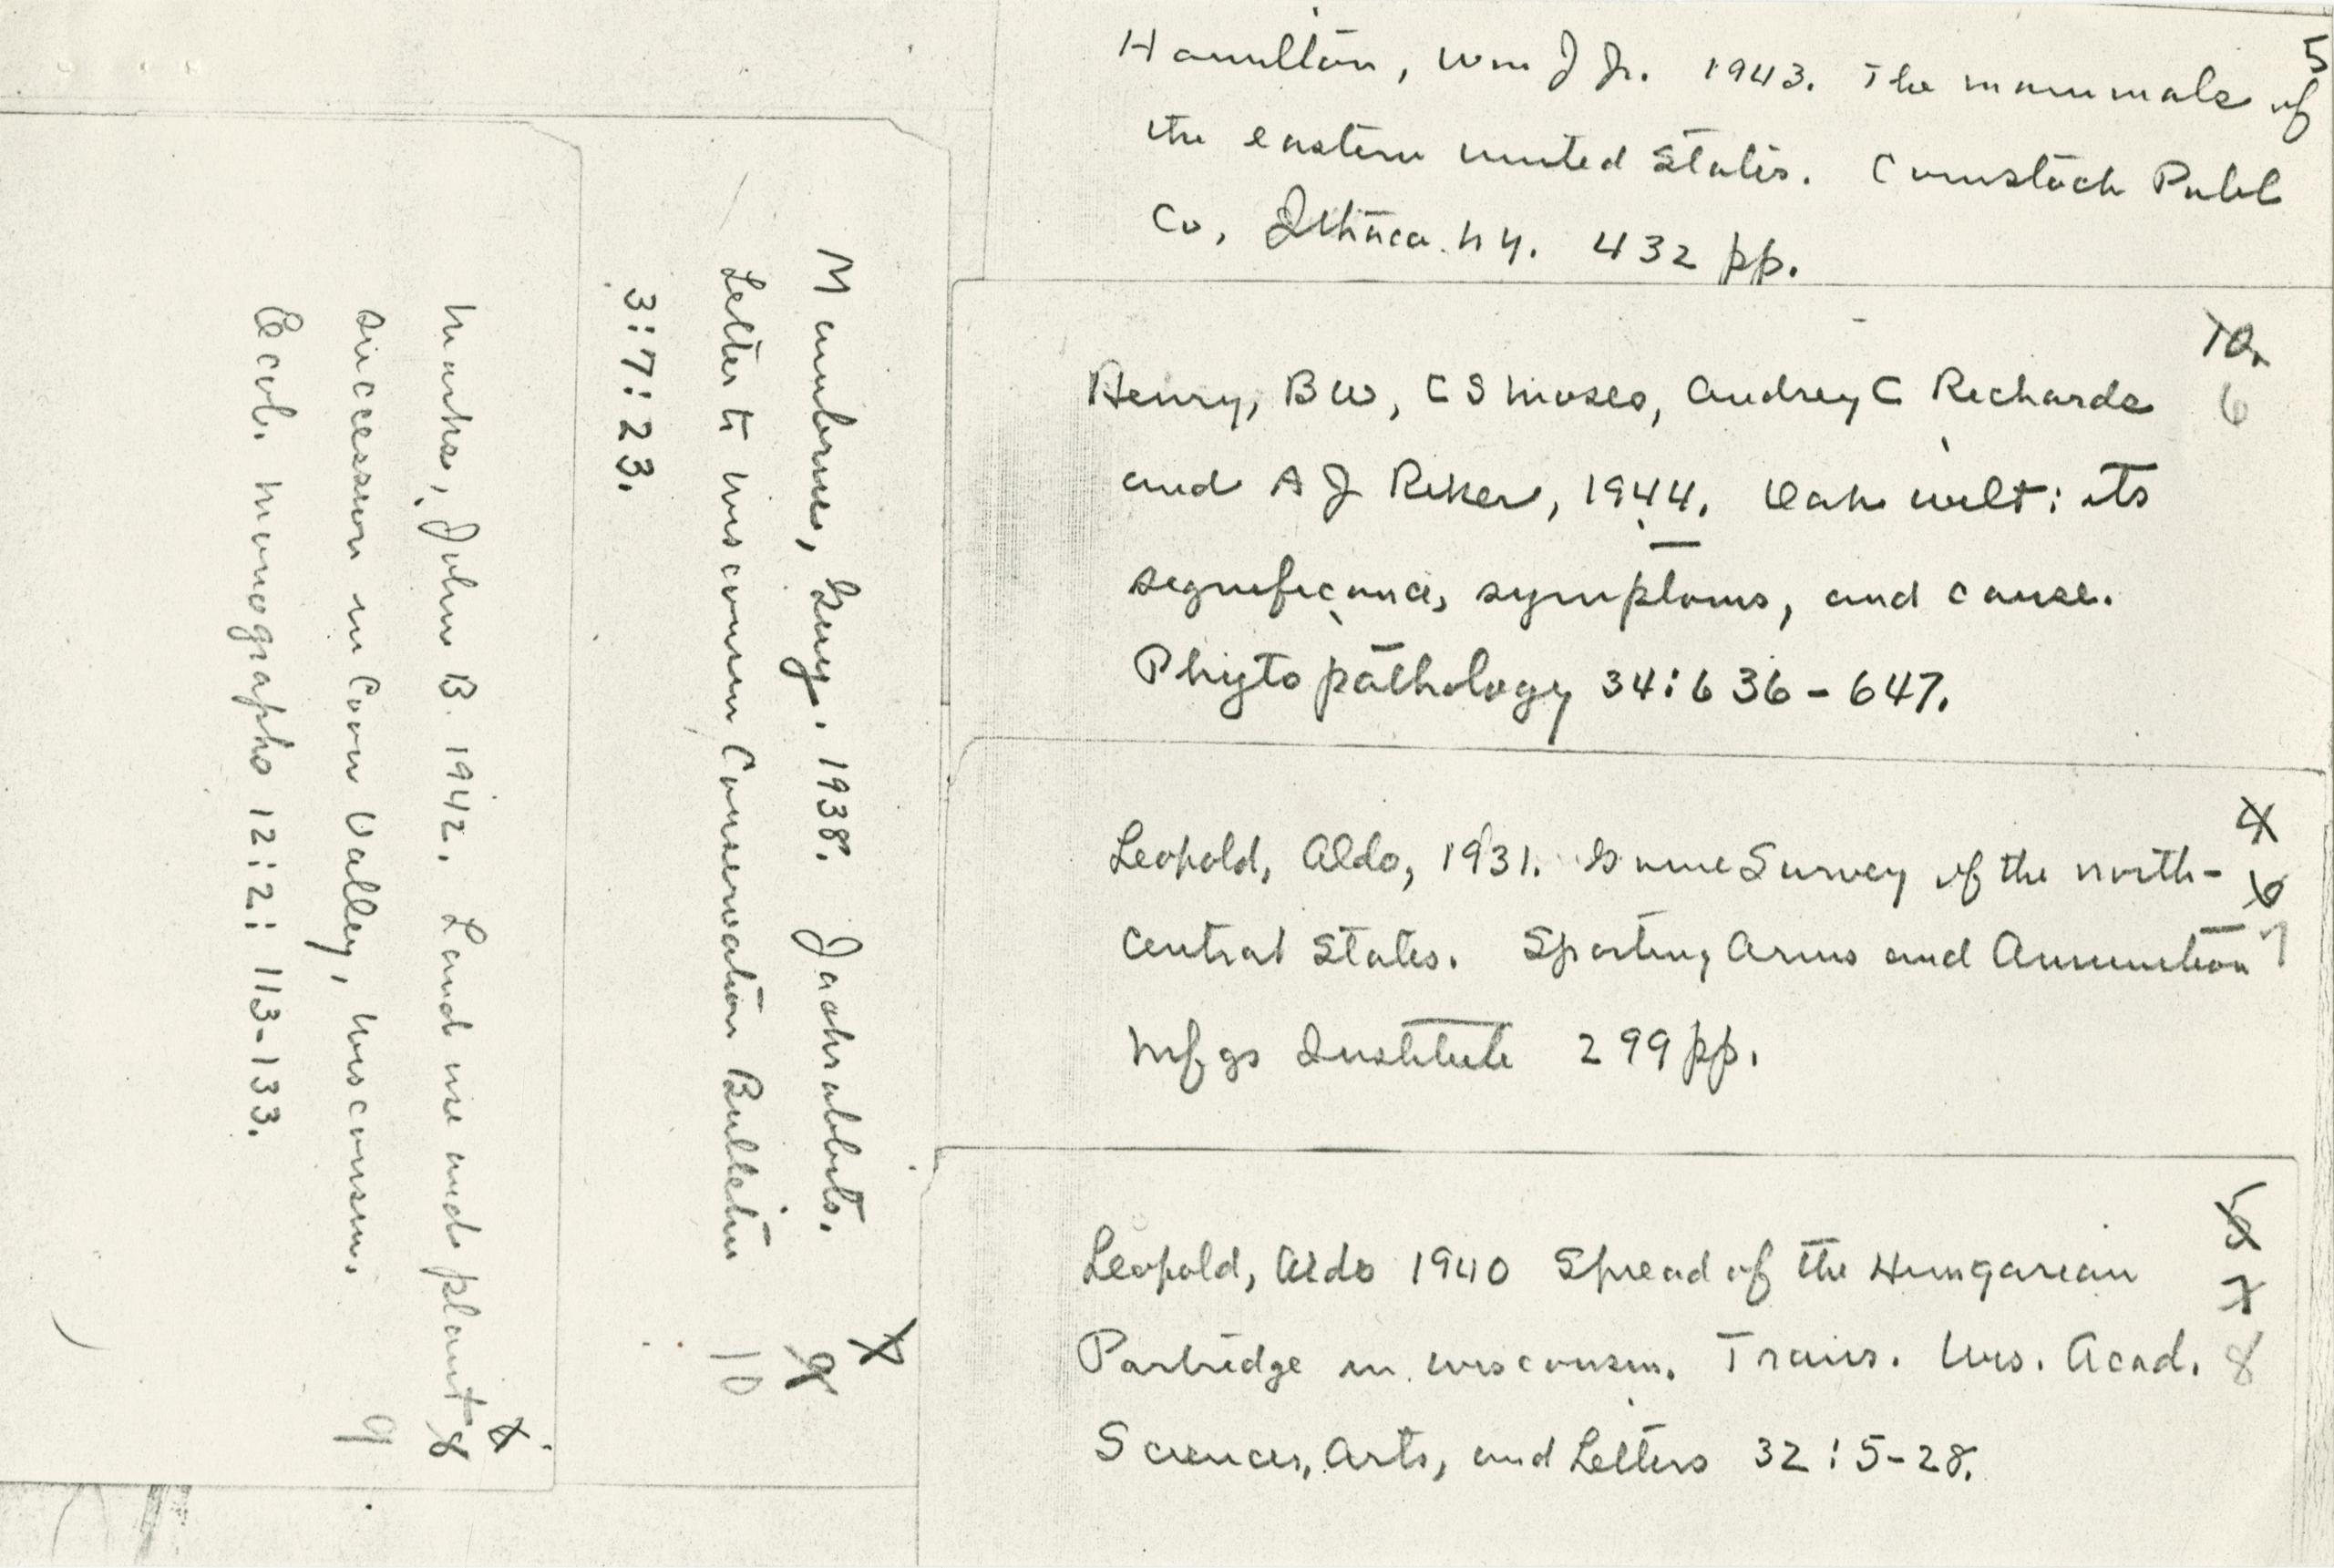 Hamilton, Wm J Jr. 1943. The mammals of
5
the eastern united States. Comstock Publ
Co, Ithaca. N Y. 432 pp.
10.
Henry, B W, C S Moses, Audrey C Richards
6
and A J Riker, 1944. Oak wilt: its
significance, symptoms, and cause.
Phytopathology 34:636-647.
4
Leopold, Aldo, 1931. Game Survey of the north-
6
central States. Sporting Arms and Ammunition
7
Mfgs Institute 299 pp.
5
Leopold, Aldo 1940 Spread of the Hungarian
7
Partridge in Wisconsin. Trans. Wis. Acad.
8
Sciences, Arts, and Letters 32:5-28.
Guy. 1938. Jackrabbits.
Letter to Wisconsin Conservation Bulletin
9
10
3:7:23.
Marks, John B. 1942. Land use and plant
8
succession in Coon Valley, Wisconsin.
9
Ecol. Monographs 12:2:113-133.